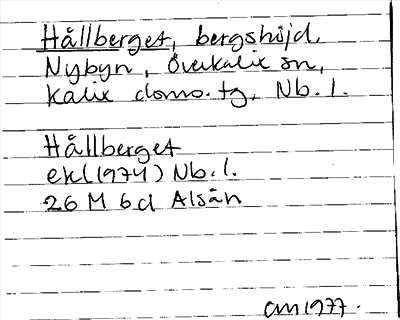 Hållberget, bergshöjd,
Nybyn, Överkalix sn,
Kalix doms.tg, Nb.l.
Hållberget
ekl(1974) Nb.l.
26 M 6d Alsån
AM 1977.